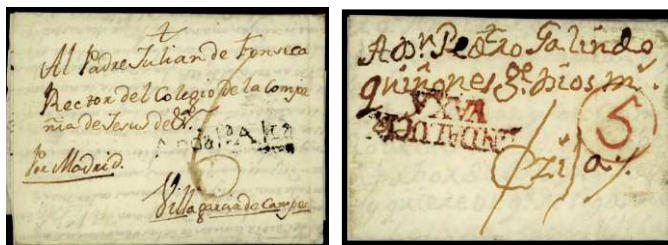 Al Padre Julian de Fonseca
Rector del Colegio de la Compa
ñia de Jesus de
Andal BAXA
Por Madrid.
6
Villagarcia de Campos
A Dn. Pedro Galindo
quiñones ge. Dios ms.
ANDALUCIA
VAXA
5